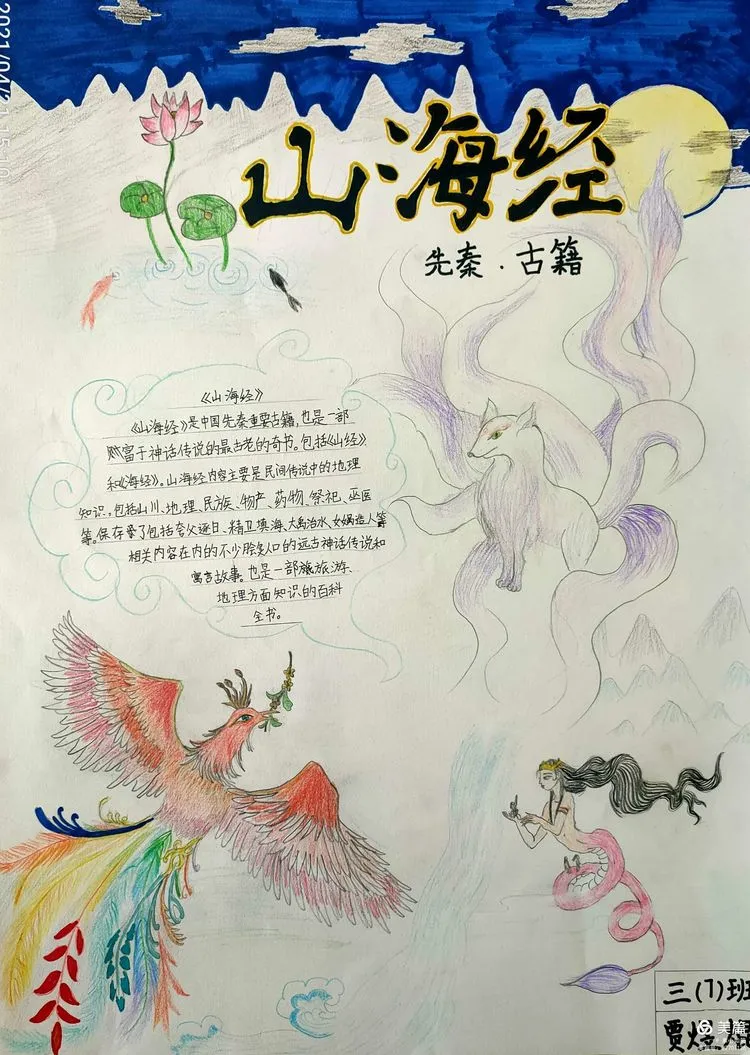 2021/04/21 15:10
山海经
先秦·古籍
《山海经》
《山海经》是中国先秦重要古籍,也是一部
富于神话传说的最古老的奇书。包括《山经》
和《海经》。山海经内容主要是民间传说中的地理
知识,包括山川、地理、民族、物产、药物、祭祀、巫医
等。保存了包括夸父逐日、精卫填海、大禹治水、女娲造人等
相关内容在内的不少脍炙人口的远古神话传说和
寓言故事。也是一部旅游、
地理方面知识的百科
全书。
三(7)班
贾煜
美篇